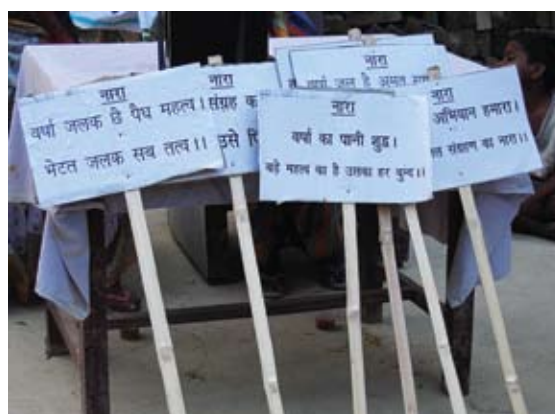 नारा
वर्षा जलक छै पैघ महत्व।
भेटत जलक सब तत्व।।
नारा
संग्रह क
उसे पि
नारा
वर्षा जल है अमृत
नारा
वर्षा का पानी शुद्ध।
बड़े महत्व का है उसका हर बुन्द।।
नारा
अभियान हमारा।
संग्रहण का नारा।।